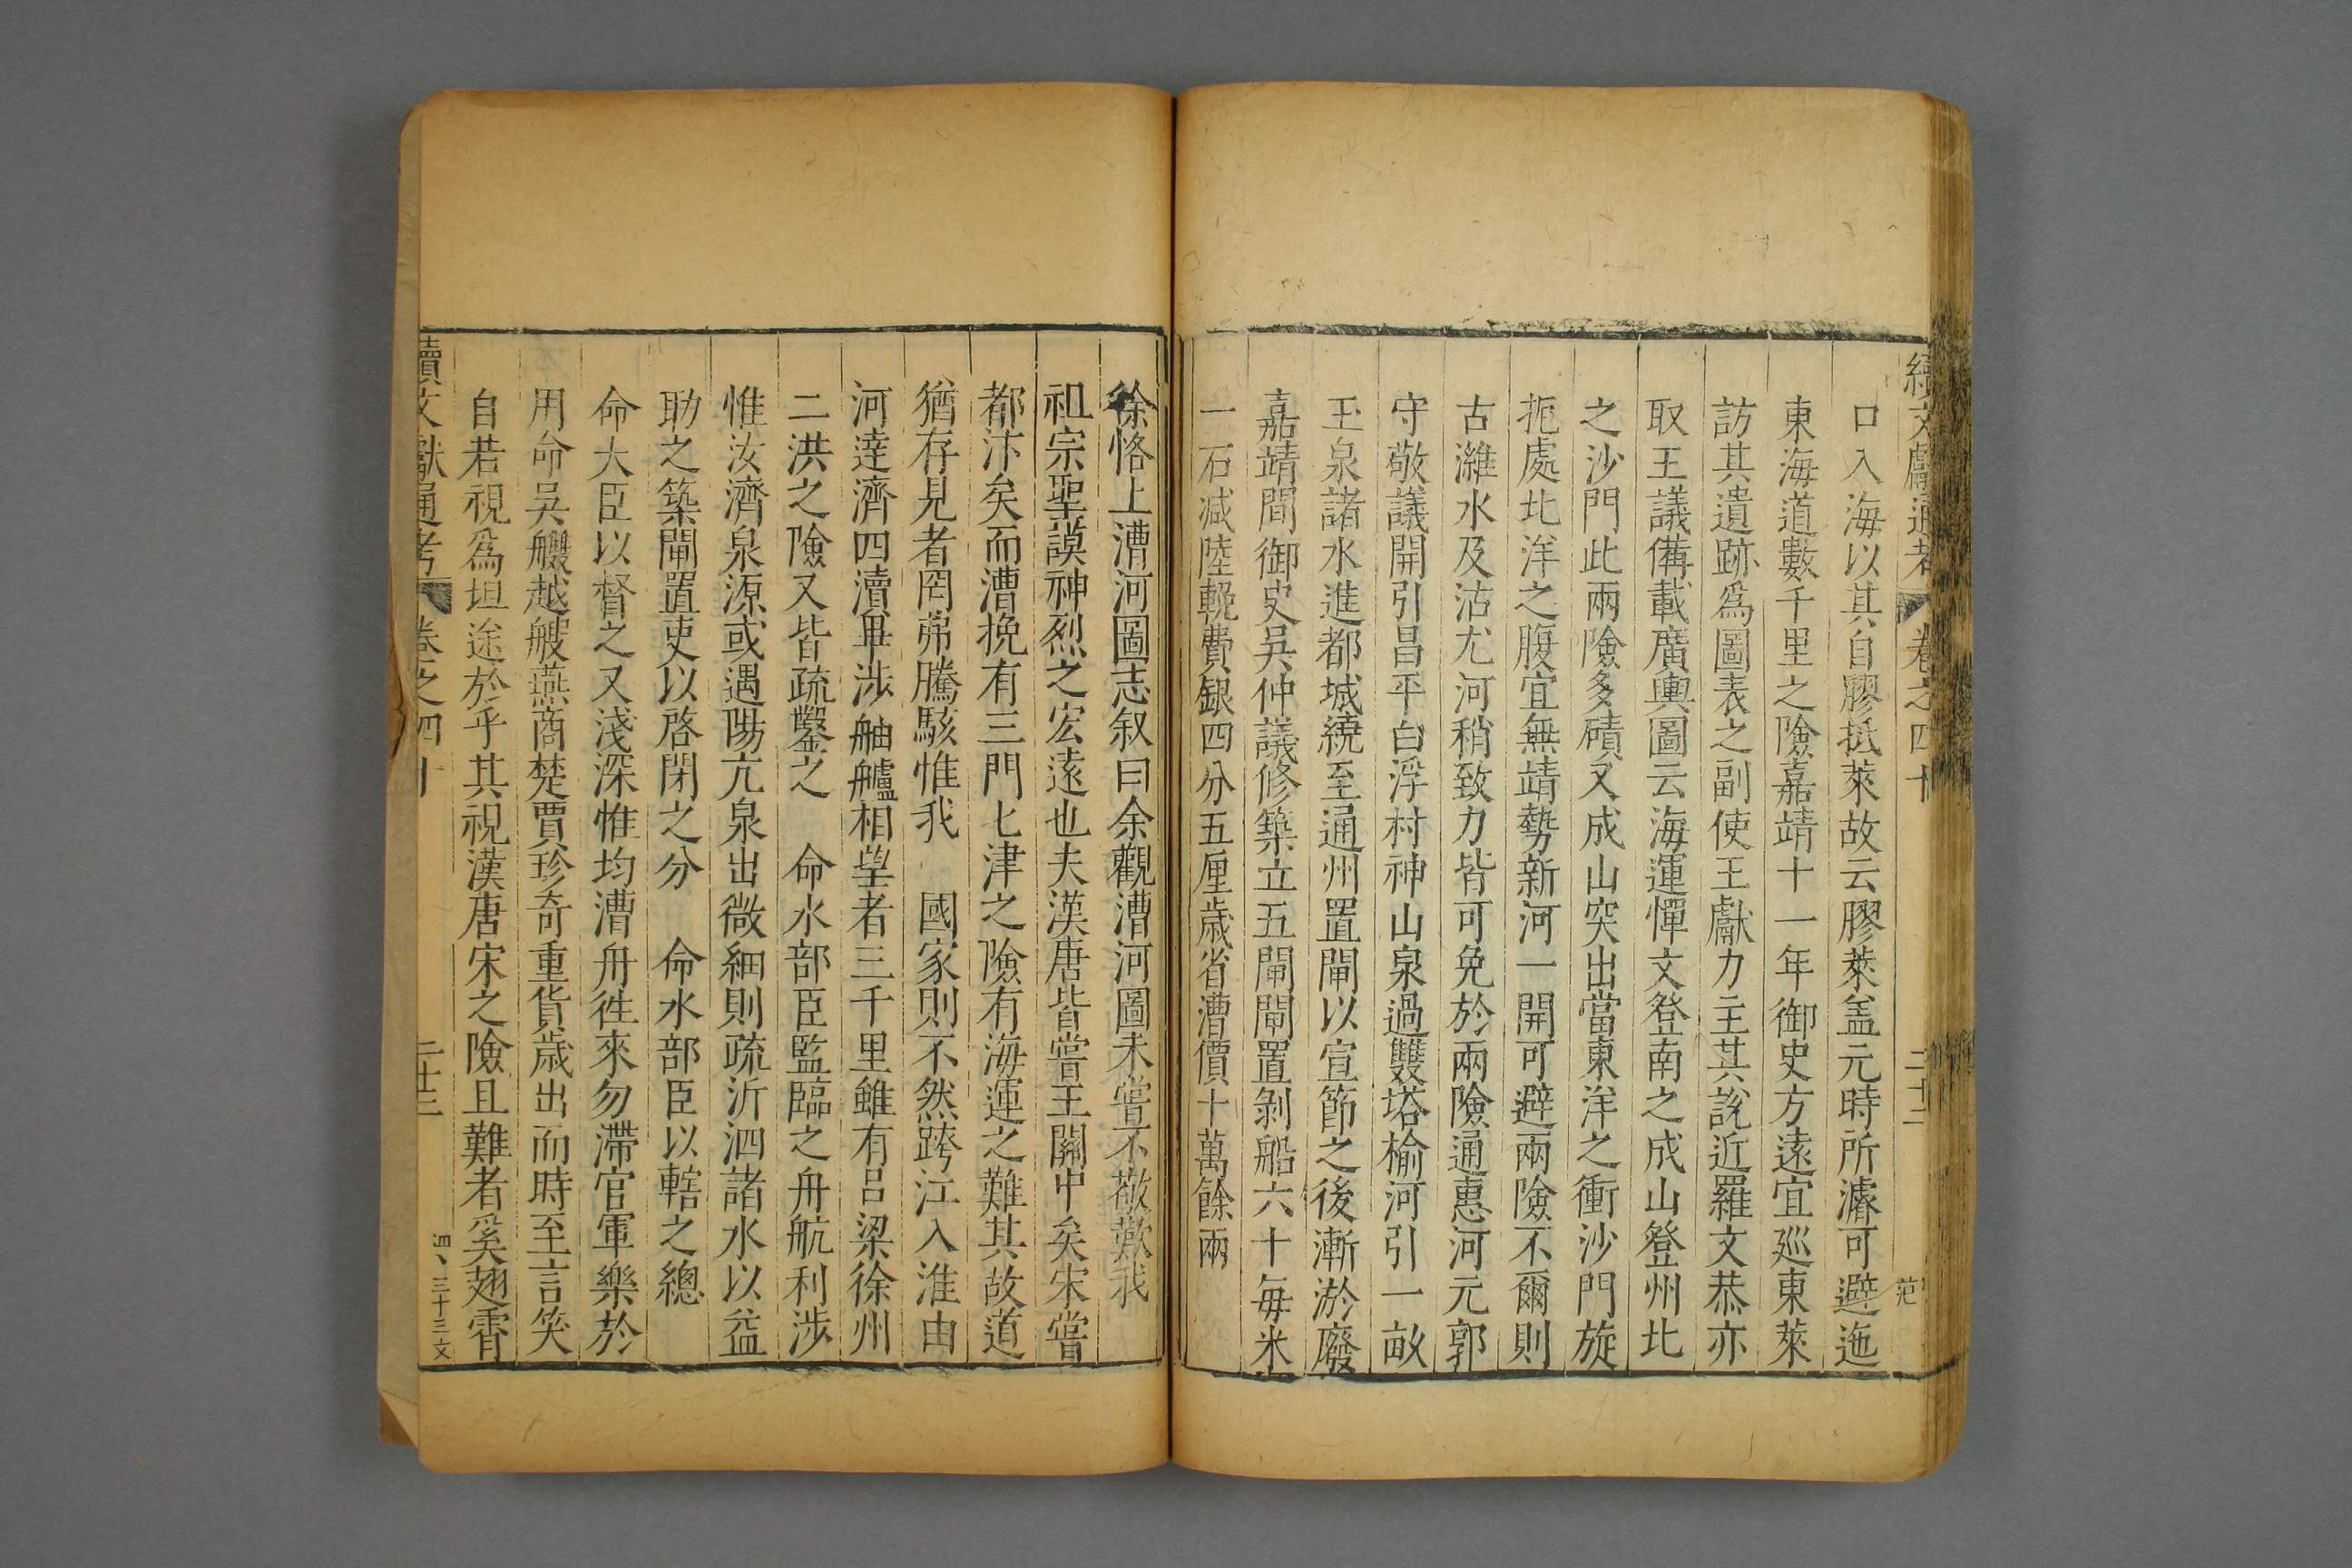 續文獻通考 卷之四十 二十二 范
口入海以其自膠抵萊故云膠萊盖元時所濬可避迤
東海道數千里之險嘉靖十一年御史方遠宜廵東萊
訪其遺跡爲圖表之副使王獻力主其說近羅文恭亦
取王議備載廣輿圖云海運憚文登南之成山登州北
之沙門此兩險多磧又成山突出當東洋之衝沙門旋
扼處北洋之腹宜無靖勢新河一開可避兩險不爾則
古濰水及沽尤河稍致力皆可免於兩險通惠河元郭
守敬議開引昌平白浮村神山泉過雙塔榆河引一畝
玉泉諸水進都城繞至通州置閘以宣節之後漸淤廢
嘉靖間御史吳仲議修築立五閘閘置剝船六十每米
一石减陸輓費銀四分五厘歲省漕價十萬餘兩
徐恪上漕河圖志叙曰余觀漕河圖未嘗不敬歎我
祖宗聖謨神烈之宏遠也夫漢唐皆嘗王關中矣宋嘗
都汴矣而漕挽有三門七津之險有海運之難其故道
猶存見者罔弗騰駭惟我 國家則不然跨江入淮由
河逹濟四瀆畢涉舳艫相望者三千里雖有呂梁徐州
二洪之險又皆疏鑿之 命水部臣監臨之舟航利涉
惟汝濟泉源或遇陽亢泉出微細則疏沂泗諸水以益
助之築閘置吏以啓閉之分 命水部臣以轄之總
命大臣以督之又淺深惟均漕舟徃來勿滯官軍樂於
用命吳艭越艘燕商楚賈珍奇重貨歲出而時至言笑
自若視爲坦途於乎其視漢唐宋之險且難者奚翅霄
續文獻通考 卷之四十 二十三 三十三文